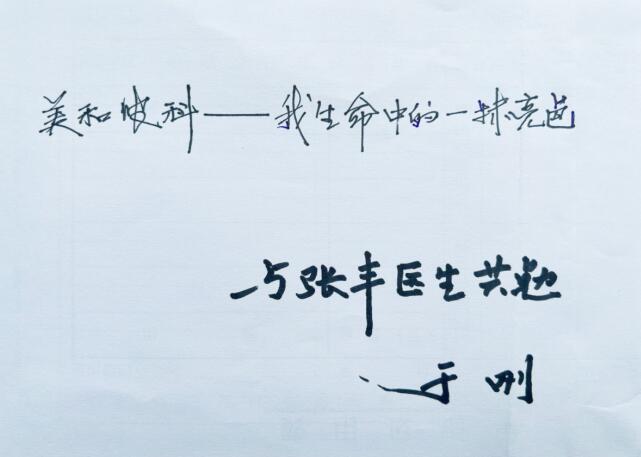 美和眼科——我生命中的一抹亮色
与张丰医生共勉
——于刚